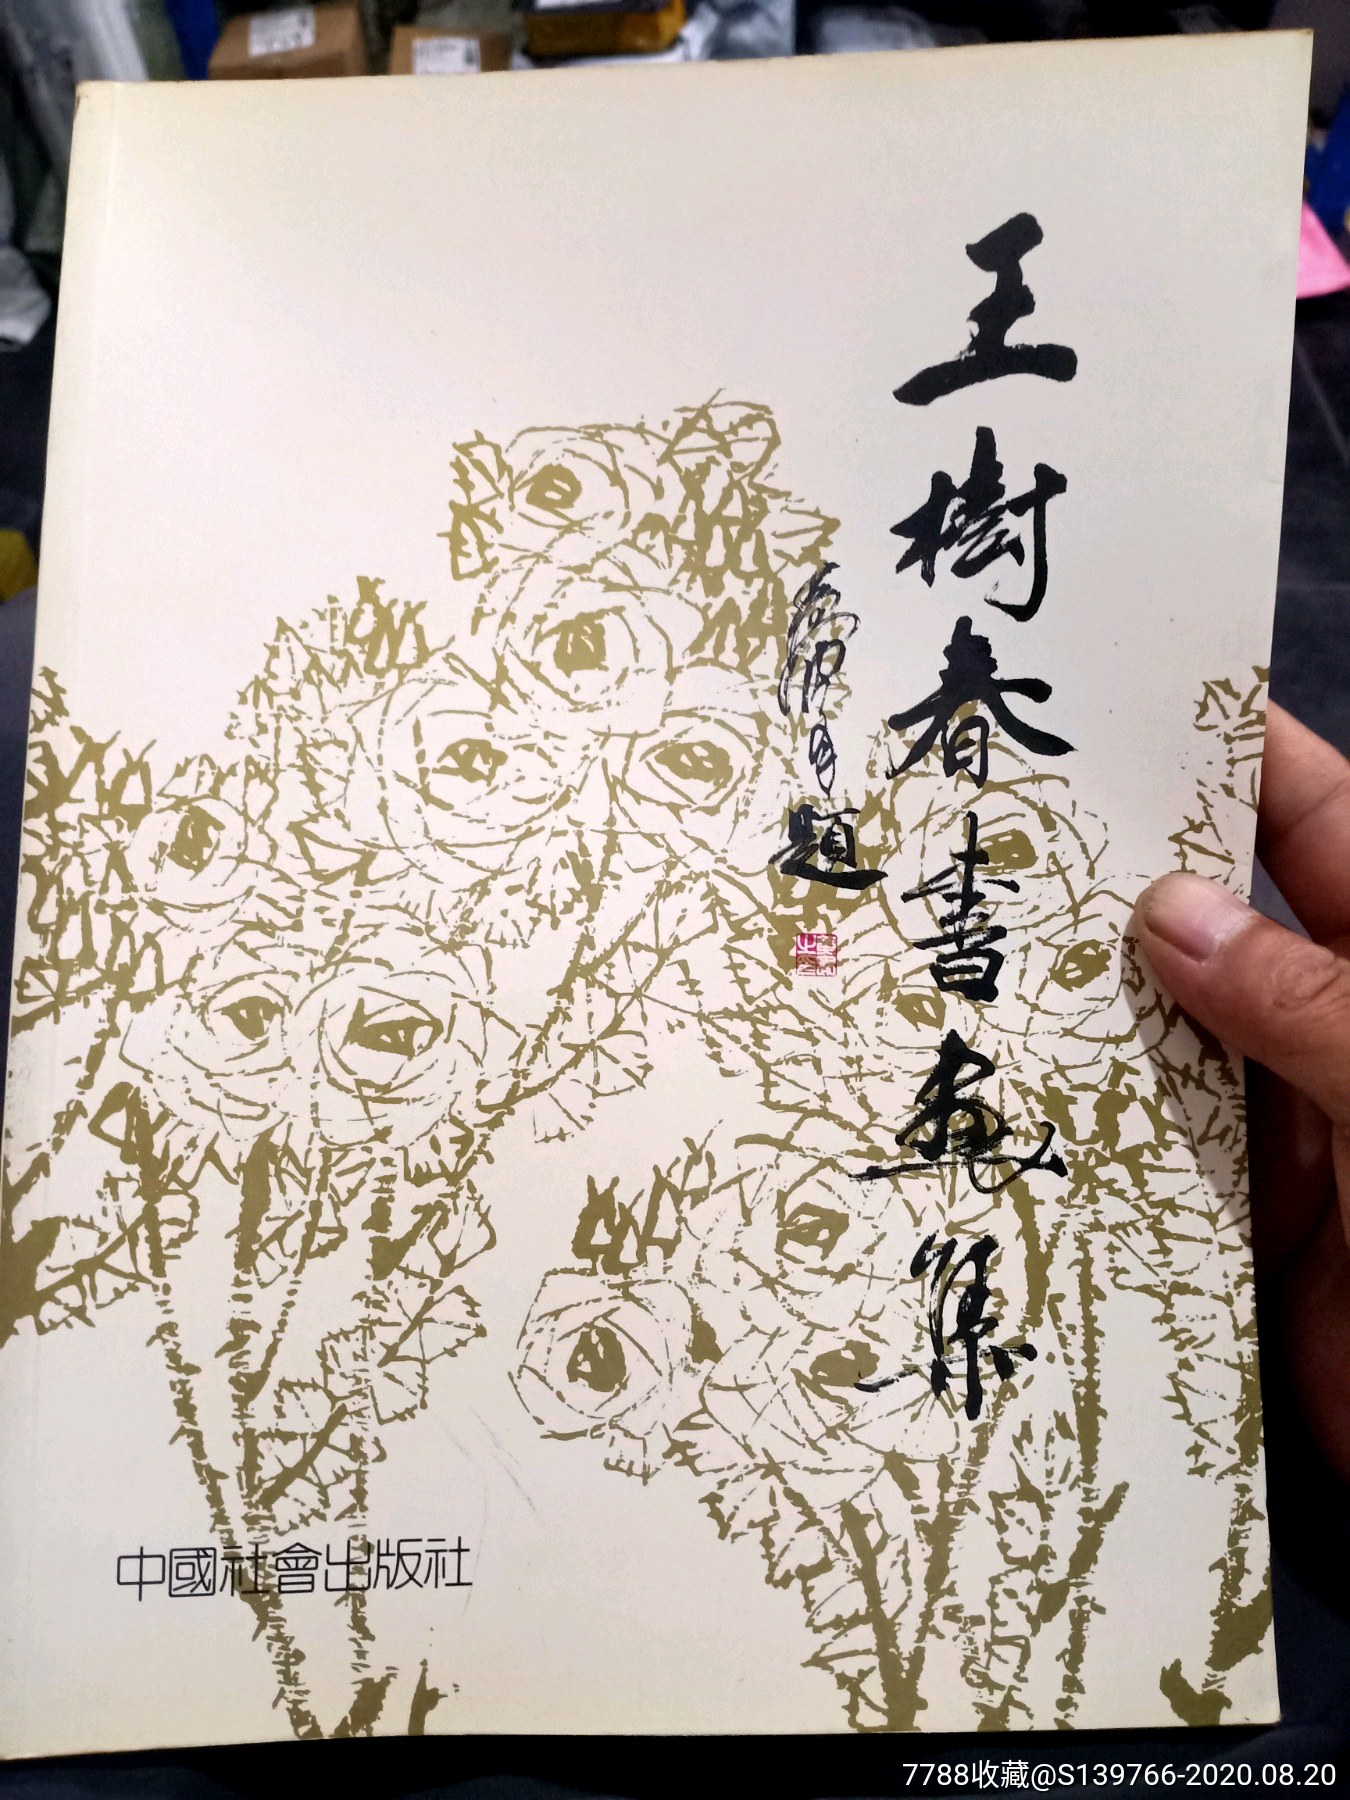 王樹春書画集
題
中國社會出版社
7788收藏@S139766-2020.08.20